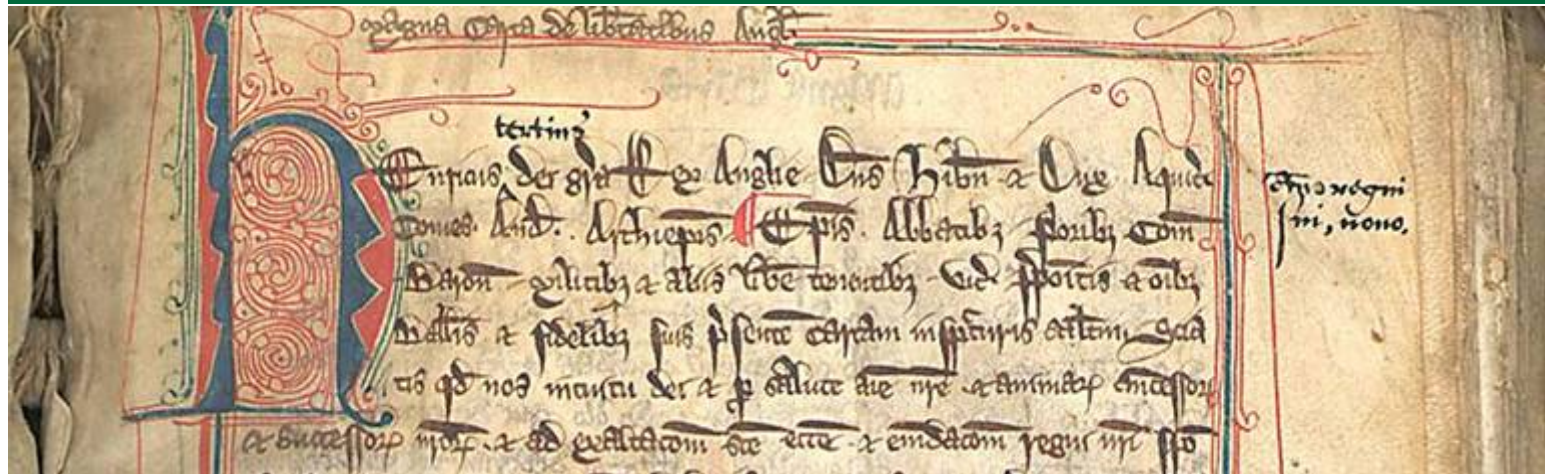 Magna Carta de lib̄tatibus Angl̄
tertius
Henricus dei gr̄a Rex Anglie Dn̄s Hib̄n ⁊ Dux Aquit̄
Comes And̄. Archiep̄is Ep̄is. Abbatibȝ Prioribȝ Com̄
Baron̄ militibȝ ⁊ aliis lib̄e tenentibȝ Vic̄ p̄positis ⁊ oībȝ
Ball̄is ⁊ fidelibȝ suis p̄sentē Cartam insp̄cturis sal̄tm Scia
tis qd̄ nos intuitu dei ⁊ p̱ salute aīe nr̄e ⁊ animaꝝ antecessoꝝ
⁊ successoꝝ nr̄oꝝ ⁊ ad exaltacōm sc̄e ecc̄e ⁊ em̄dacōm regni nr̄i spō
Anno regni
sui, nono.